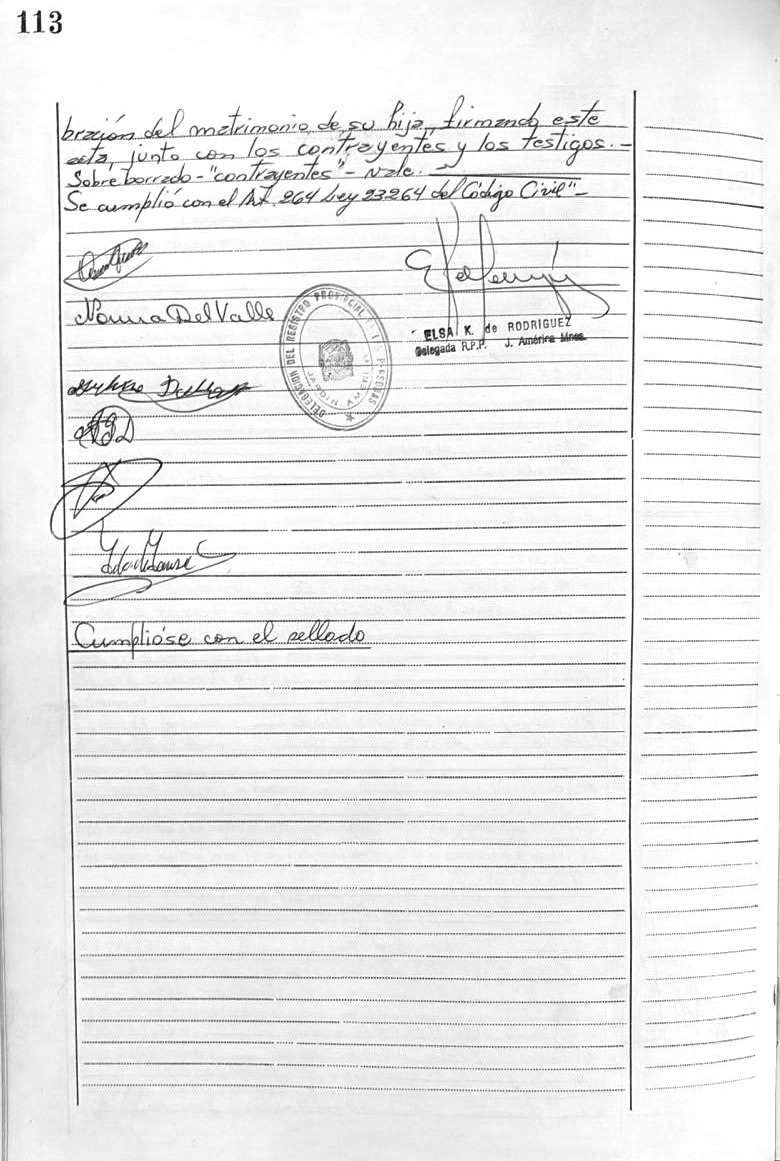 113
bración del matrimonio de su hija, firmando este
acta, junto con los contrayentes y los testigos.-
Sobre borrado-"contrayentes"- Vale.-
Se cumplió con el Art. 264 Ley 23264 del Código Civil"-
Norma Del Valle
DELEGACION DEL REGISTRO PROVINCIAL PERSONAS
JARDIN AMERICA
ELSA K. de RODRIGUEZ
Delegada R.P.P. J. América Mnes.
Cumplióse con el sellado